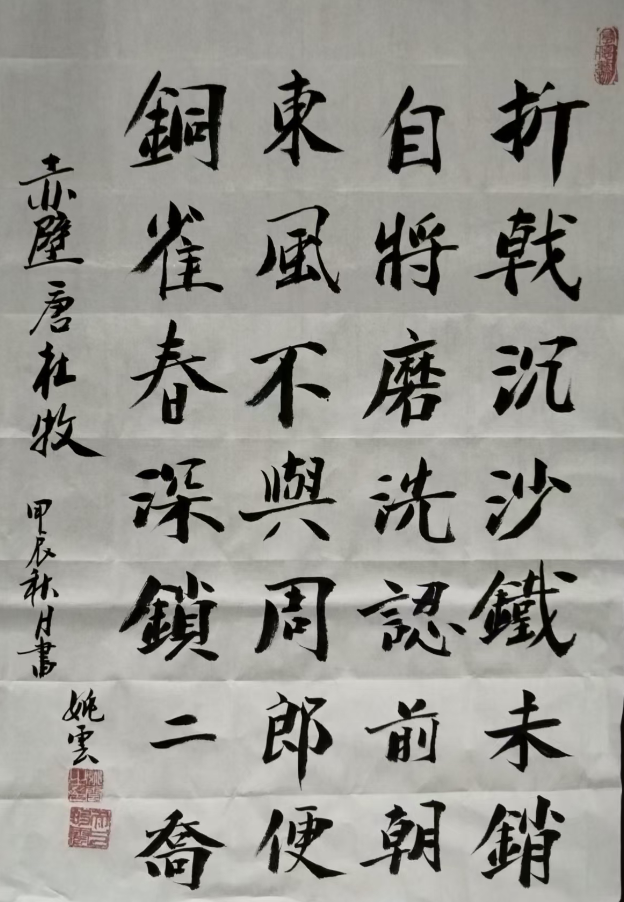 折戟沉沙鐵未銷
自將磨洗認前朝
東風不與周郎便
銅雀春深鎖二喬
赤壁唐杜牧
甲辰秋月書
姚雲